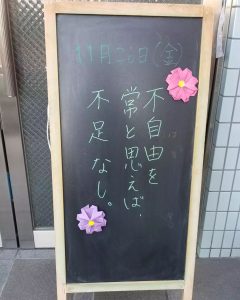 11月20日(金)
不自由を
常と思えば、
不足なし。